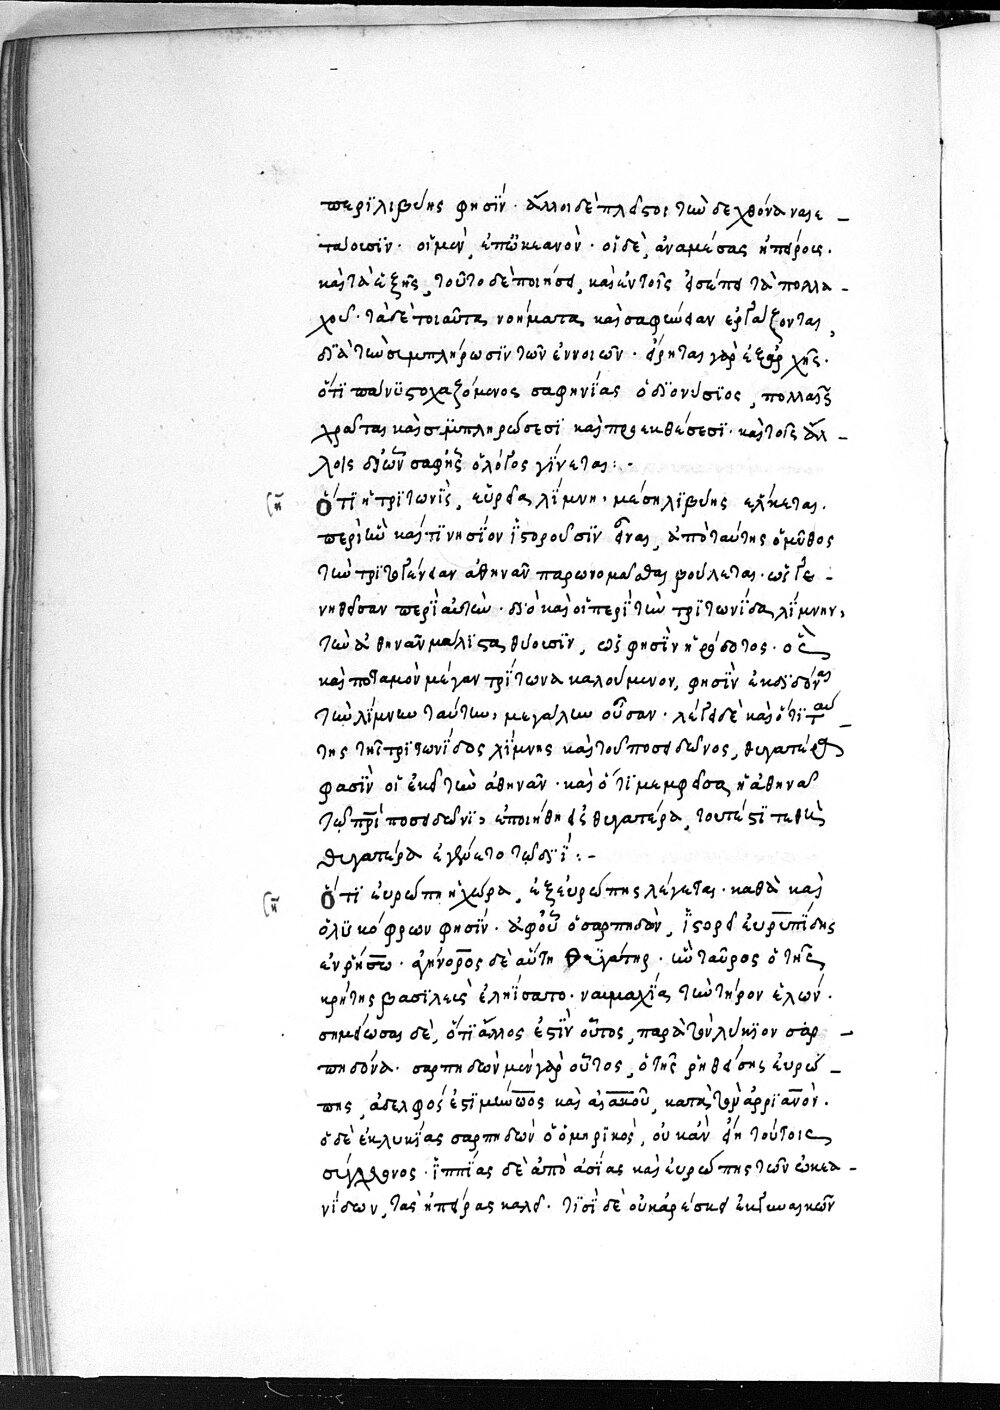 περὶ λιβύης φησίν· ἄλλοι δὲ πλεῖστοι τὴν δε χθόνα ναιε
τάουσιν· οἱ μὲν, ἐπ' ὠκεανὸν· οἱ δὲ, ἀναμέσας ἠπείρους·
καὶ τὰ ἑξῆς, τοῦτο δὲ ποιήσει, καὶ ἐν τοῖς ἔπειτα πολλα
χοῦ· τὰ δὲ τοιαῦτα νοήματα, καὶ σαφήνειαν ἐργάζονται,
διὰ τὴν συμπλήρωσιν τῶν ἐννοιῶν· εἴρηται γὰρ ἐξ ἀρχῆς·
ὅτι πάνυ στοχαζόμενος σαφηνείας ὁ διονύσιος, πολλαῖς
χρᾶται καὶ συμπληρώσεσι καὶ προεκθέσεσι· καὶ τοῖς ἄλ
λοις δι' ὧν σαφὴς ὁ λόγος γίνεται:·
Ὅτι ἡ τριτωνὶς, εὐρεῖα λίμνη· μέση λιβύης ἑλίκεται.
περὶ ἣν καί τι νησίον ἱστοροῦσιν εἶναι, ἀπὸ ταύτης ὁ μῦθος
τὴν τριτογένειαν ἀθηνᾶν παρωνομάσθαι βούλεται· ὡς γε
νηθεῖσαν περὶ αὐτὴν· διὸ καὶ οἱ περὶ τὴν τριτωνίδα λίμνην,
τὴν ἀθηνᾶν μάλιστα θύουσιν, ὥς φησὶν ἡρόδοτος· ὃς
καὶ ποταμὸν μέγαν τρίτωνα καλούμενον, φησὶν ἐκδιδόναι
τὴν λίμνην ταύτην, μεγάλην οὖσαν· λέγει δὲ καὶ ὅτι ταύ
της τῆς τριτωνίδος λίμνης καὶ τοῦ ποσειδῶνος, θυγατέρα
φασὶν οἱ ἐκεῖ τὴν ἀθηνᾶν· καὶ ὅτι μεμφθεῖσα ἡ ἀθηνᾶ
τῷ πατρὶ ποσειδῶνι, ἐποιήθη θυγατέρα, τουτέστι τεθεῖσ
θυγατέρα ἐγένετο τῷ διΐ:·
Ὅτι εὐρώπη ἡ χώρα, ἐξ εὐρώπης λέγεται· καθὰ καὶ
ὁ λυκόφρων φησίν· ἀφ' οὗ ὁ σαρπηδὼν, ἱστορεῖ εὐριπίδης
ἐν ῥήσῳ· ἀγήνορος δὲ αὕτη θυγάτηρ· ἣν ταῦρος ὁ τῆς
κρήτης βασιλεὺς ἐληΐσατο· ναυμαχίᾳ τὴν τύρον ἑλών.
σημείωσαι δὲ, ὅτι ἄλλος ἐστὶν οὗτος, παρὰ τὸν λύκιον σαρ
πηδόνα· σαρπηδὼν μὲν γὰρ οὗτος, ὁ τῆς ῥηθείσης εὐρώ
πης, ἀδελφός ἐστι μίνωος καὶ αἰακοῦ, κατὰ τὸν ἀρριανόν.
ὁ δὲ ἐκ λυκίας σαρπηδὼν ὁ ὁμηρικὸς, οὐκ ἂν εἴη τούτοις
σύγχρονος· ἱππίας δὲ ἀπὸ ἀσίας καὶ εὐρώπης τῶν ὠκεα
νίδων, τὰς ἠπείρας καλεῖ· τισὶ δὲ οὐκ ἀρέσκει ἐκ γυναικῶν